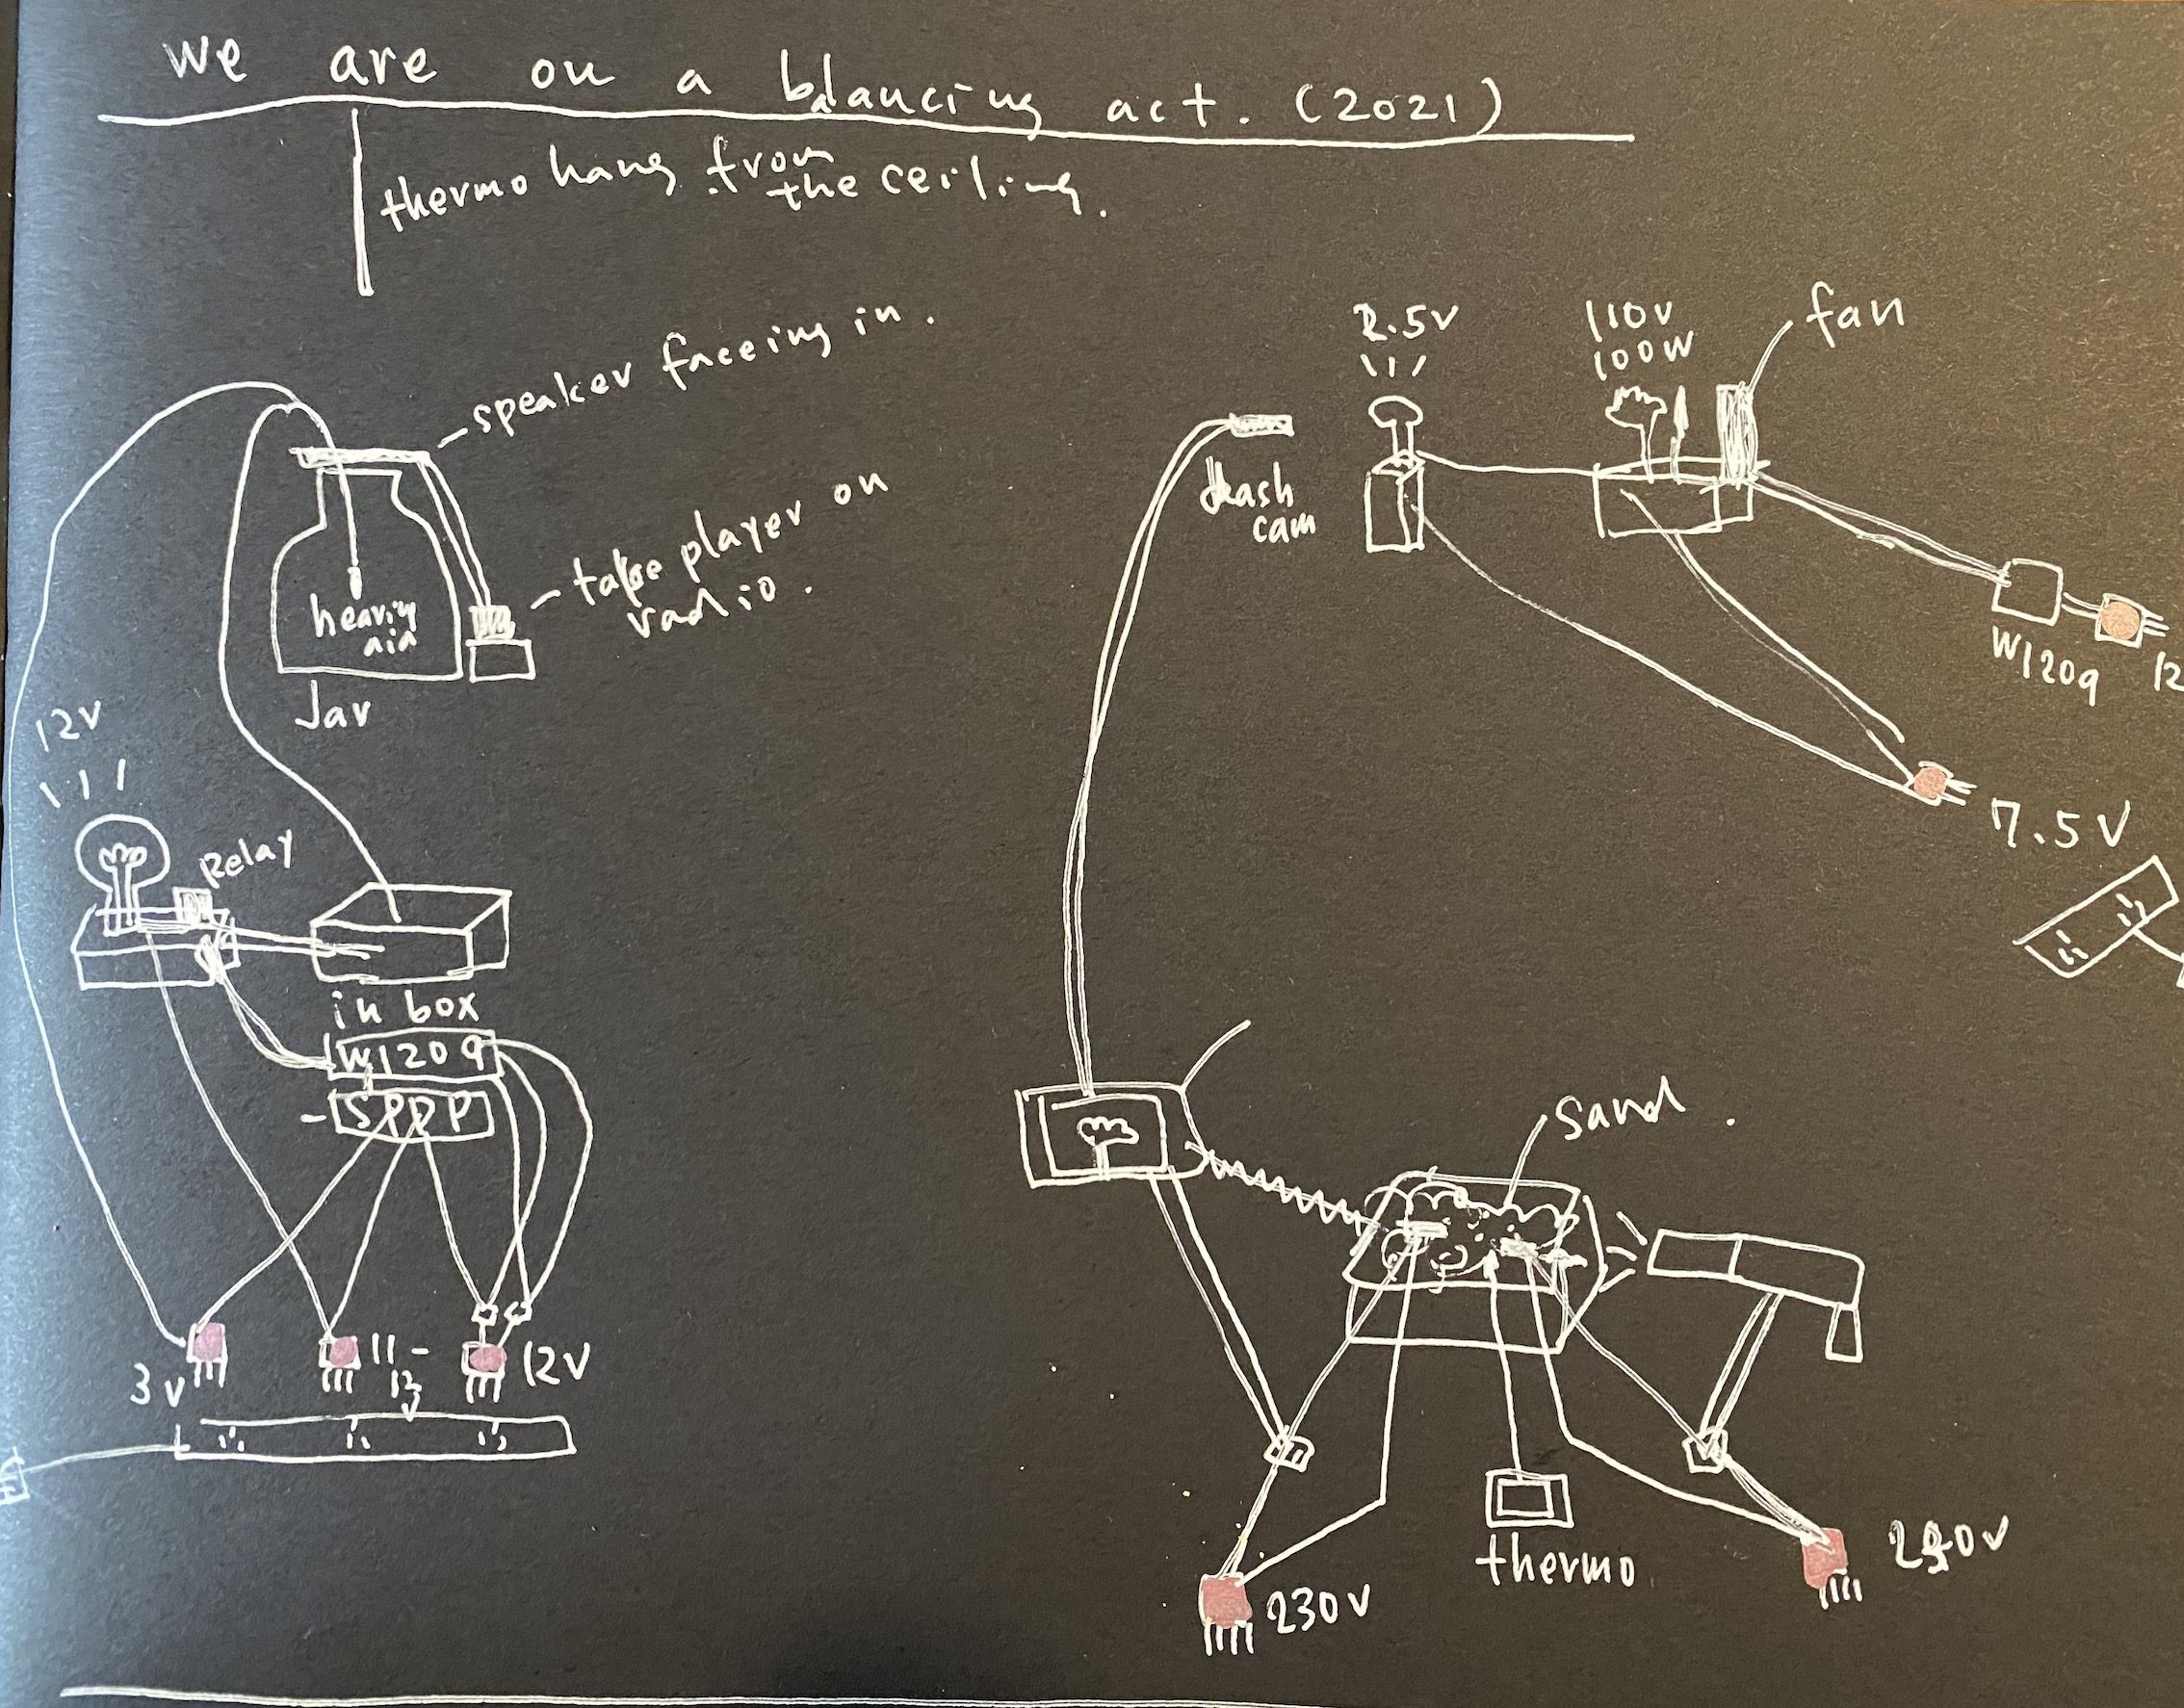 we are on a balancing act. (2021)
thermo hang from
the ceiling.
speaker faceing in.
tape player on
radio.
hearing
aid
Jar
12V
Relay
in box
W1209
SPDP
3V
11-
12V
dash
cam
2.5V
110V
100W
fan
W1209
12
7.5V
sand.
thermo
230V
240V